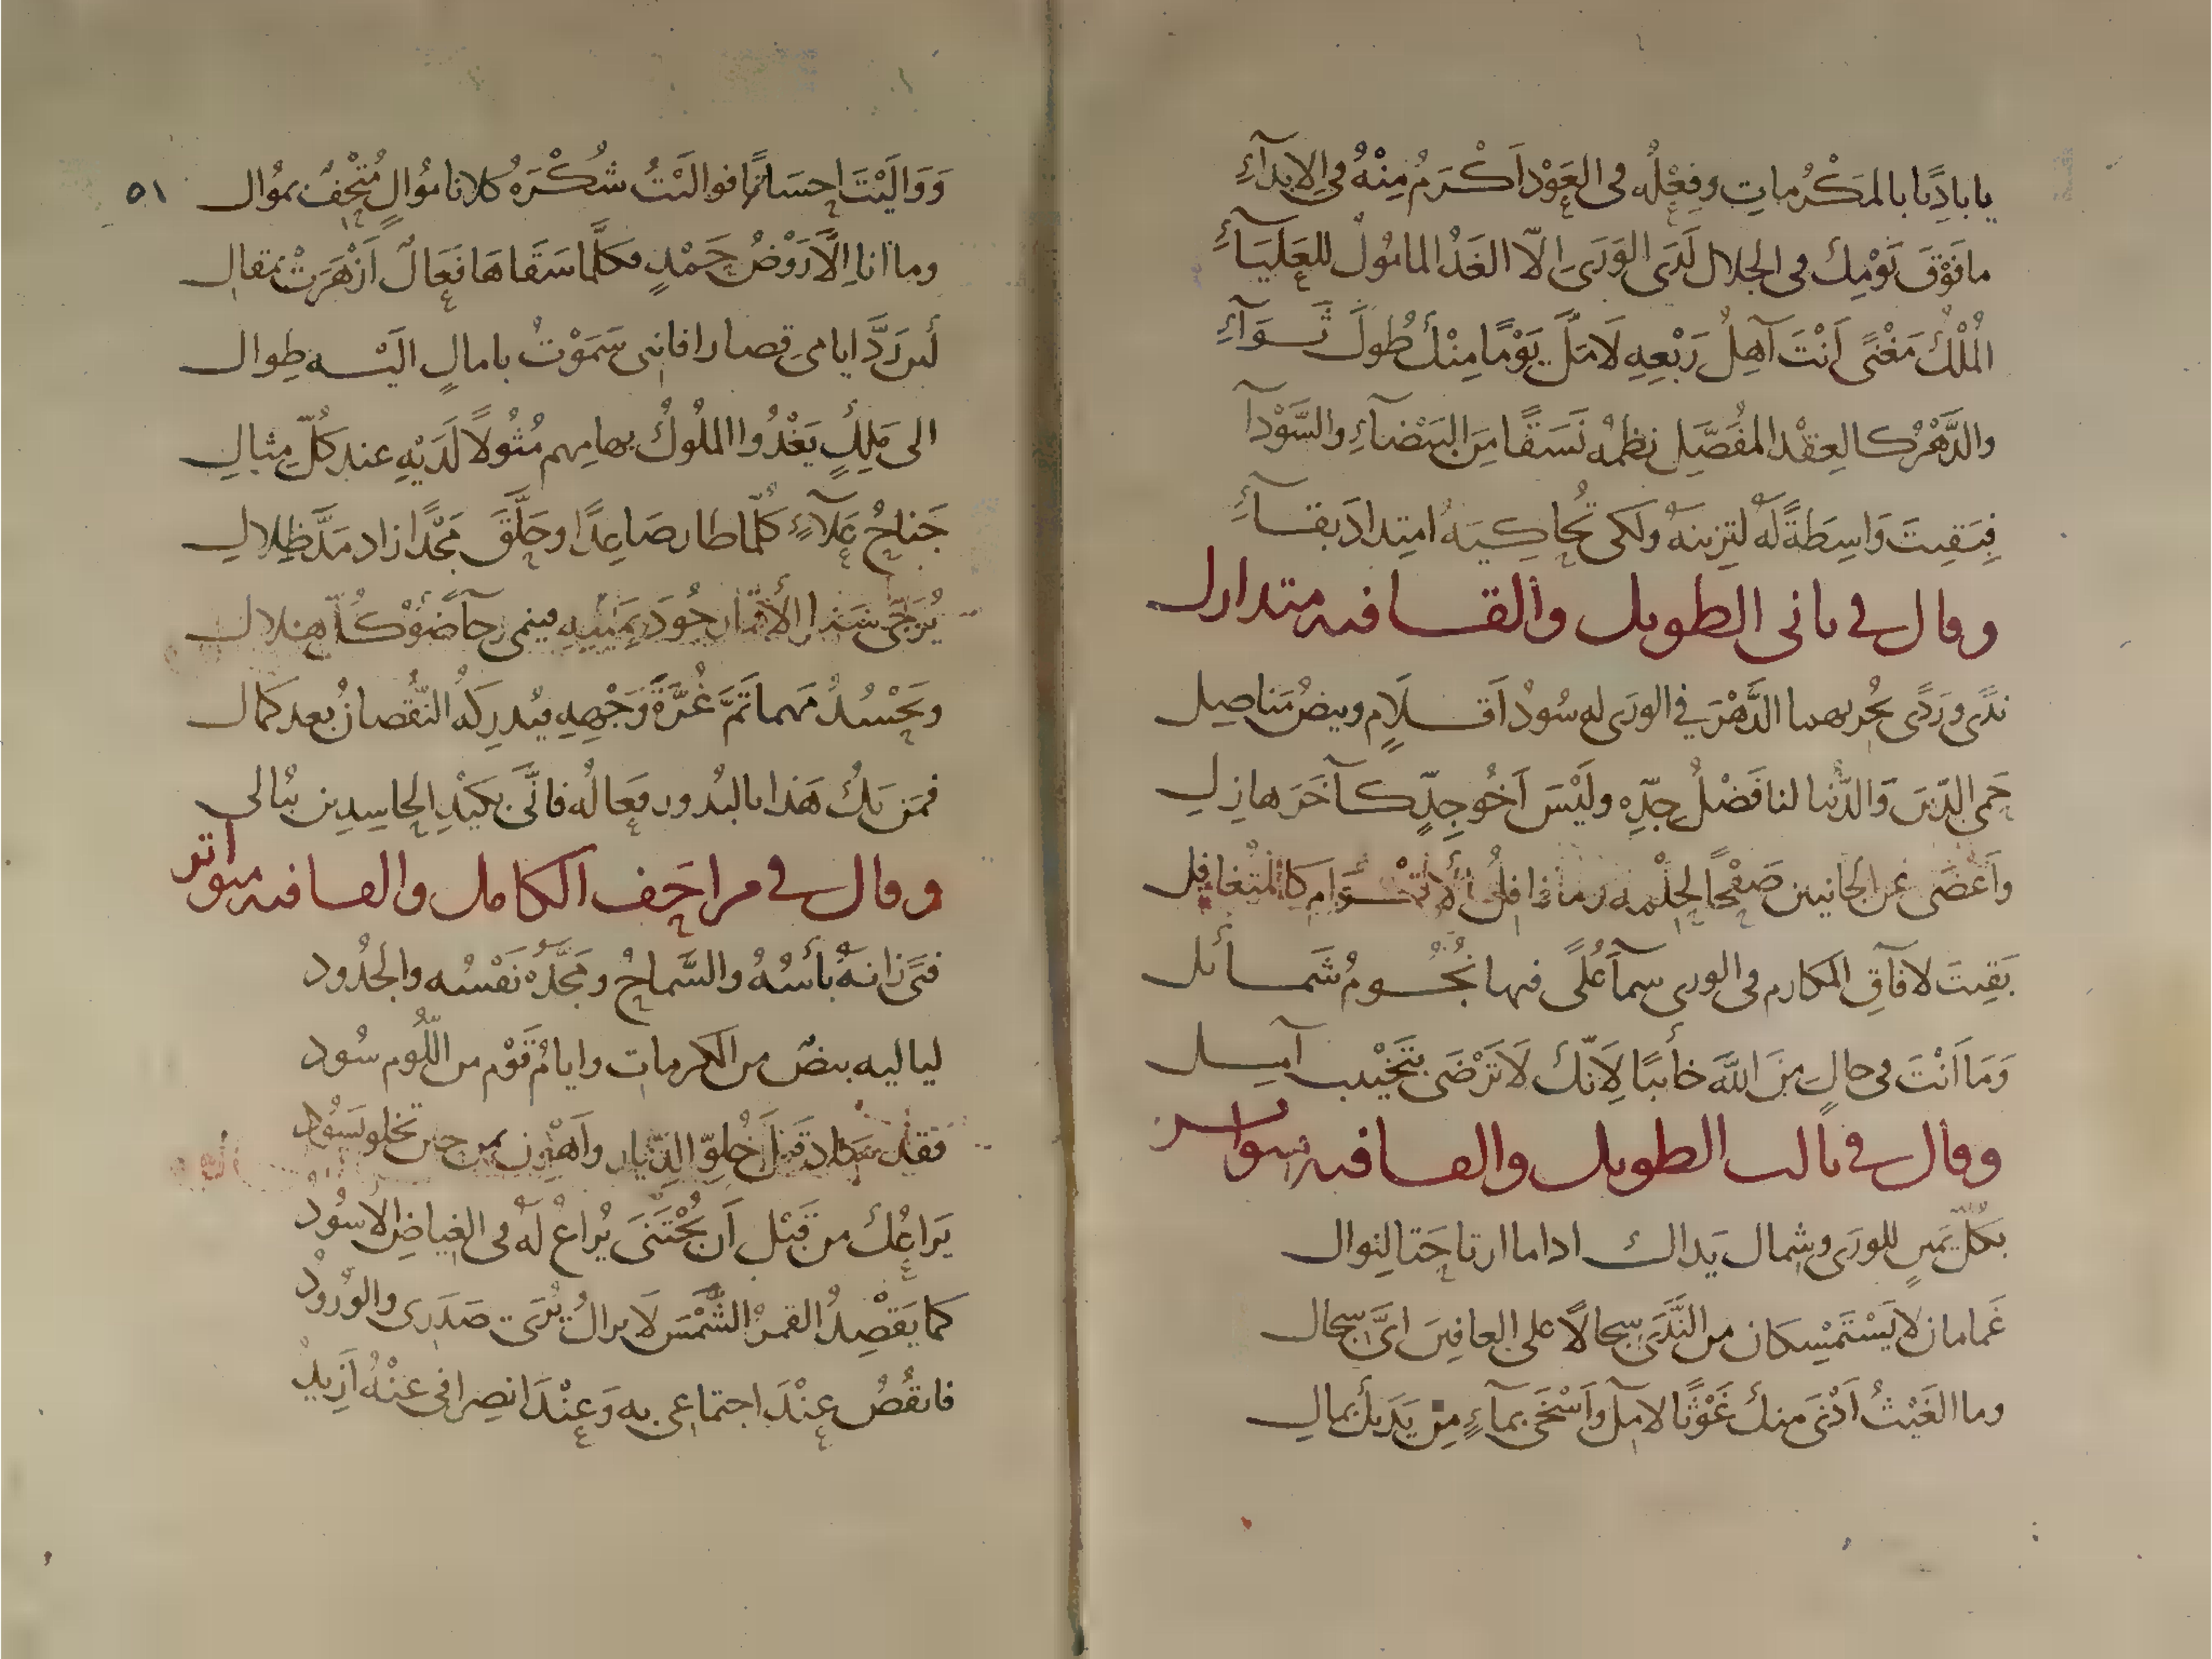 يا باديًا بالمَكْرُماتِ وفِعْلُه في العَوْد اَكْرَمُ مِنْهُ في الابدآءِ
ما فَوْقَ يَوْمِكَ في الجلال لَدَى الوَرَى الّا الغَدُ المامُولُ للعَلْيَآءِ
المُلْكُ مَغْنًى اَنْتَ آهِلُ رَبْعِهِ لَا مَلَّ يَوْمًا مِنْكَ طُولَ ثَوَآءِ
والدَّهْرُ كالعِقْد المفَصَّلِ نظمُه نَسَقًا مِنَ البَيْضآءِ والسَّوْدآ
فبَقِيتَ وَاسِطَةً لَهُ لتَزِينَهُ ولكى تُحاكِيَهُ امتِدادَ بقآءِ
وقال في ثاني الطويل والقافيه متدارك
نَدًى ورَدًى يُجرِيهما الدَّهْرَ في الورَى له سُودُ اَقلامٍ وبيضُ مَناصِل
حَمى الدّينَ وَالدُّنيا لنا فَضْلُ جِدِّه ولَيْسَ اَخُو جِدٍّ كآخَرَ هازِلِ
واَغْضَى عن الجانين صَفْحًا لحِلْمِه وما غافِلُ الاقْوام كالمُتَغافِلِ
بَقِيتَ لآفاقِ المكارم في الورى سمآ عُلًى فيها نُجُومُ شَمائل
وَمَا اَنْتَ في حالٍ مِنَ اللَّه خائبًا لِاَنّكَ لَا تَرْضَى بتَخْيِيب آمِل
وقال في ثالث الطويل والقافيه متواتر
بكُلّ يَمينٍ للورَى وشِمال يَداك اذا ما ارتاحَتا لِنوال
غَمامان لا يَسْتَمْسِكان من النَّدَى سِجالًا على العافِينَ ايَّ سِجال
وما الغَيْثُ اَدْنَى منكَ غَوْثًا لآمِلٍ واَسْخَى بمآءٍ مِن يَدَيكَ بمالِ
٥١
وَوَالَيْتَ اِحسَانًا فوالَيْتُ شُكْرَهُ كلانا مُوالٍ مُتْحِفٌ بمُوالِ
وما انا اِلَّا رَوْضُ حَمْدٍ فكلَّما سَقَاهَا فَعَالٌ اَزْهَرَتْ بمَقالِ
لَئن رَدَّ ايامى قِصارا فانني سَمَوْتُ بآمالٍ اليْه طِوال
الى مَلِكٍ يَغْدُوا المُلُوكُ بهامِهم مُثُولًا لَدَيْهِ عند كُلّ مِثالِ
جَناحُ عَلآءٍ كُلَّما طار صَاعِدًا وحَلَّقَ مَجْدًا زاد مَدَّ ظِلالِ
يُرَجّى الأقْمار جُودَ يَمينِهِ ضَوْء كُلّ هِلال
ويَحْسُدُ مَهما تَمَّ غُرَّةَ وَجْهِهِ فيُدرِكُهُ النُّقْصانُ بعد كمال
فمَن يَكُ هَذا بالبُدُور فِعَالُه فانَّى بكَيْدِ الحاسِدِين يُبالى
وقال في مزاحَف الكامل والقافيه متواتر
فتىً زانهُ بأسُهُ والسَّماحُ ومَجَّدَهُ نَفْسُه والجدُود
لياليه بيضٌ من المكرمات وايامُ قَوْم من اللُّوم سُود
فقل قَبْلَ خُلوّ الدِّيار واَهْوِن بمن حين تخلو يَسُود
يَراعُكَ من قَبْل اَن يُجْتَنَى يُراعُ لَهُ في الغِياضِ الاُسُودُ
كما يَقْصِدُ القمرُ الشَّمْسَ لَا يزالُ يُرَى صَدَرى والوُرودُ
فانقُصُ عِنْدَ اجتماعى به وَعِنْدَ انصِرافى عنْهُ اَزيدُ